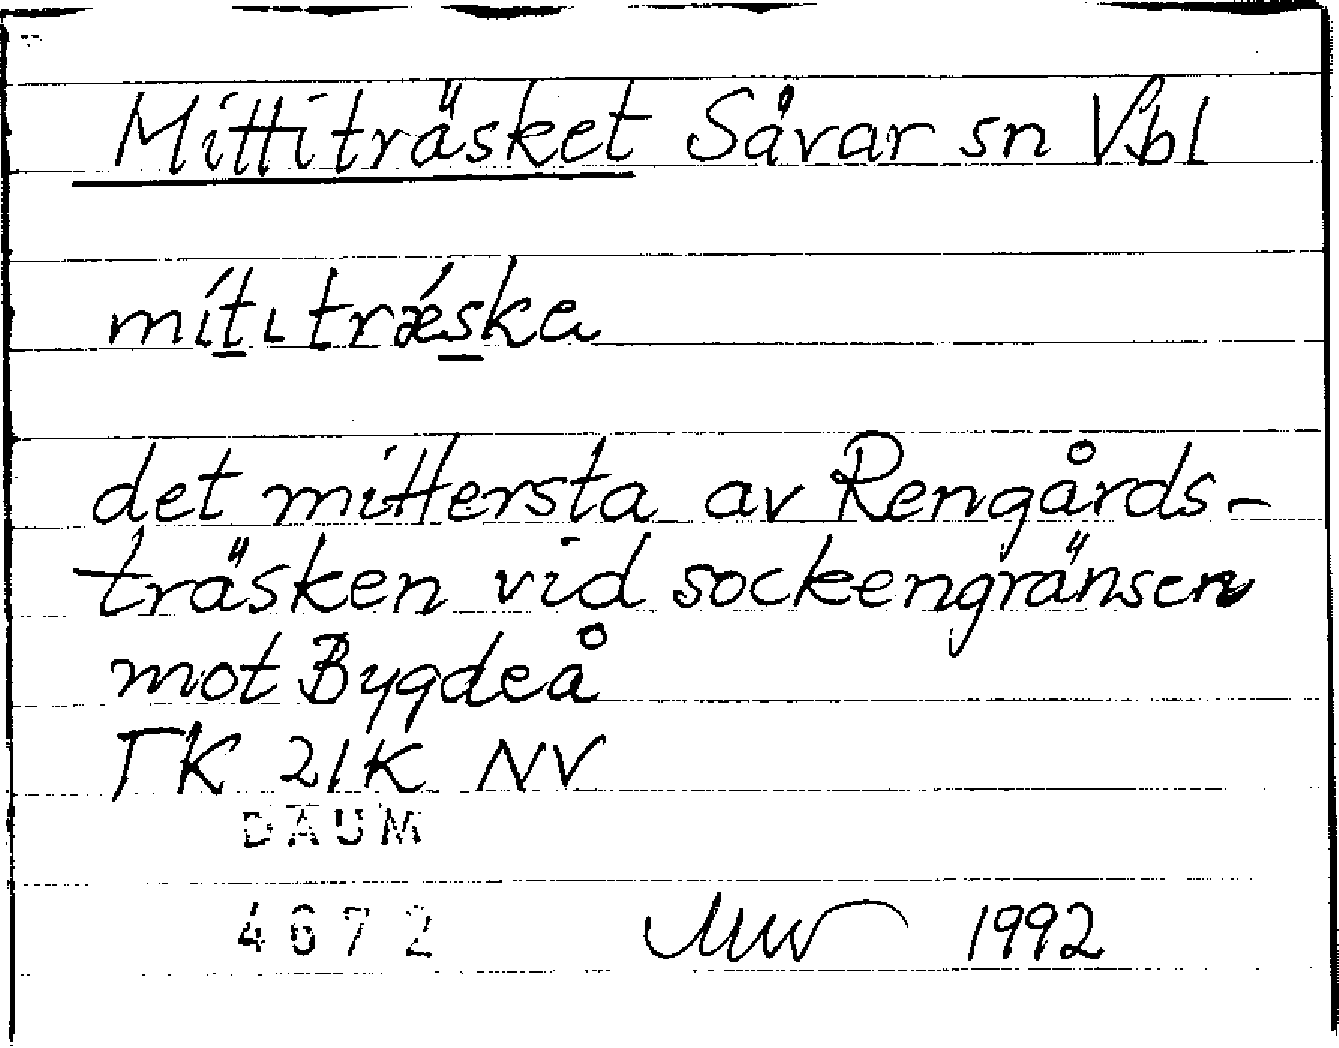 Mittiträsket Såvar sn Vbl
mít̲ı trǽs̲ka
det mittersta av Rengårds-
träsken vid sockengränsen
mot Bygdeå
TK 21K NV
DAUM
4672 1992